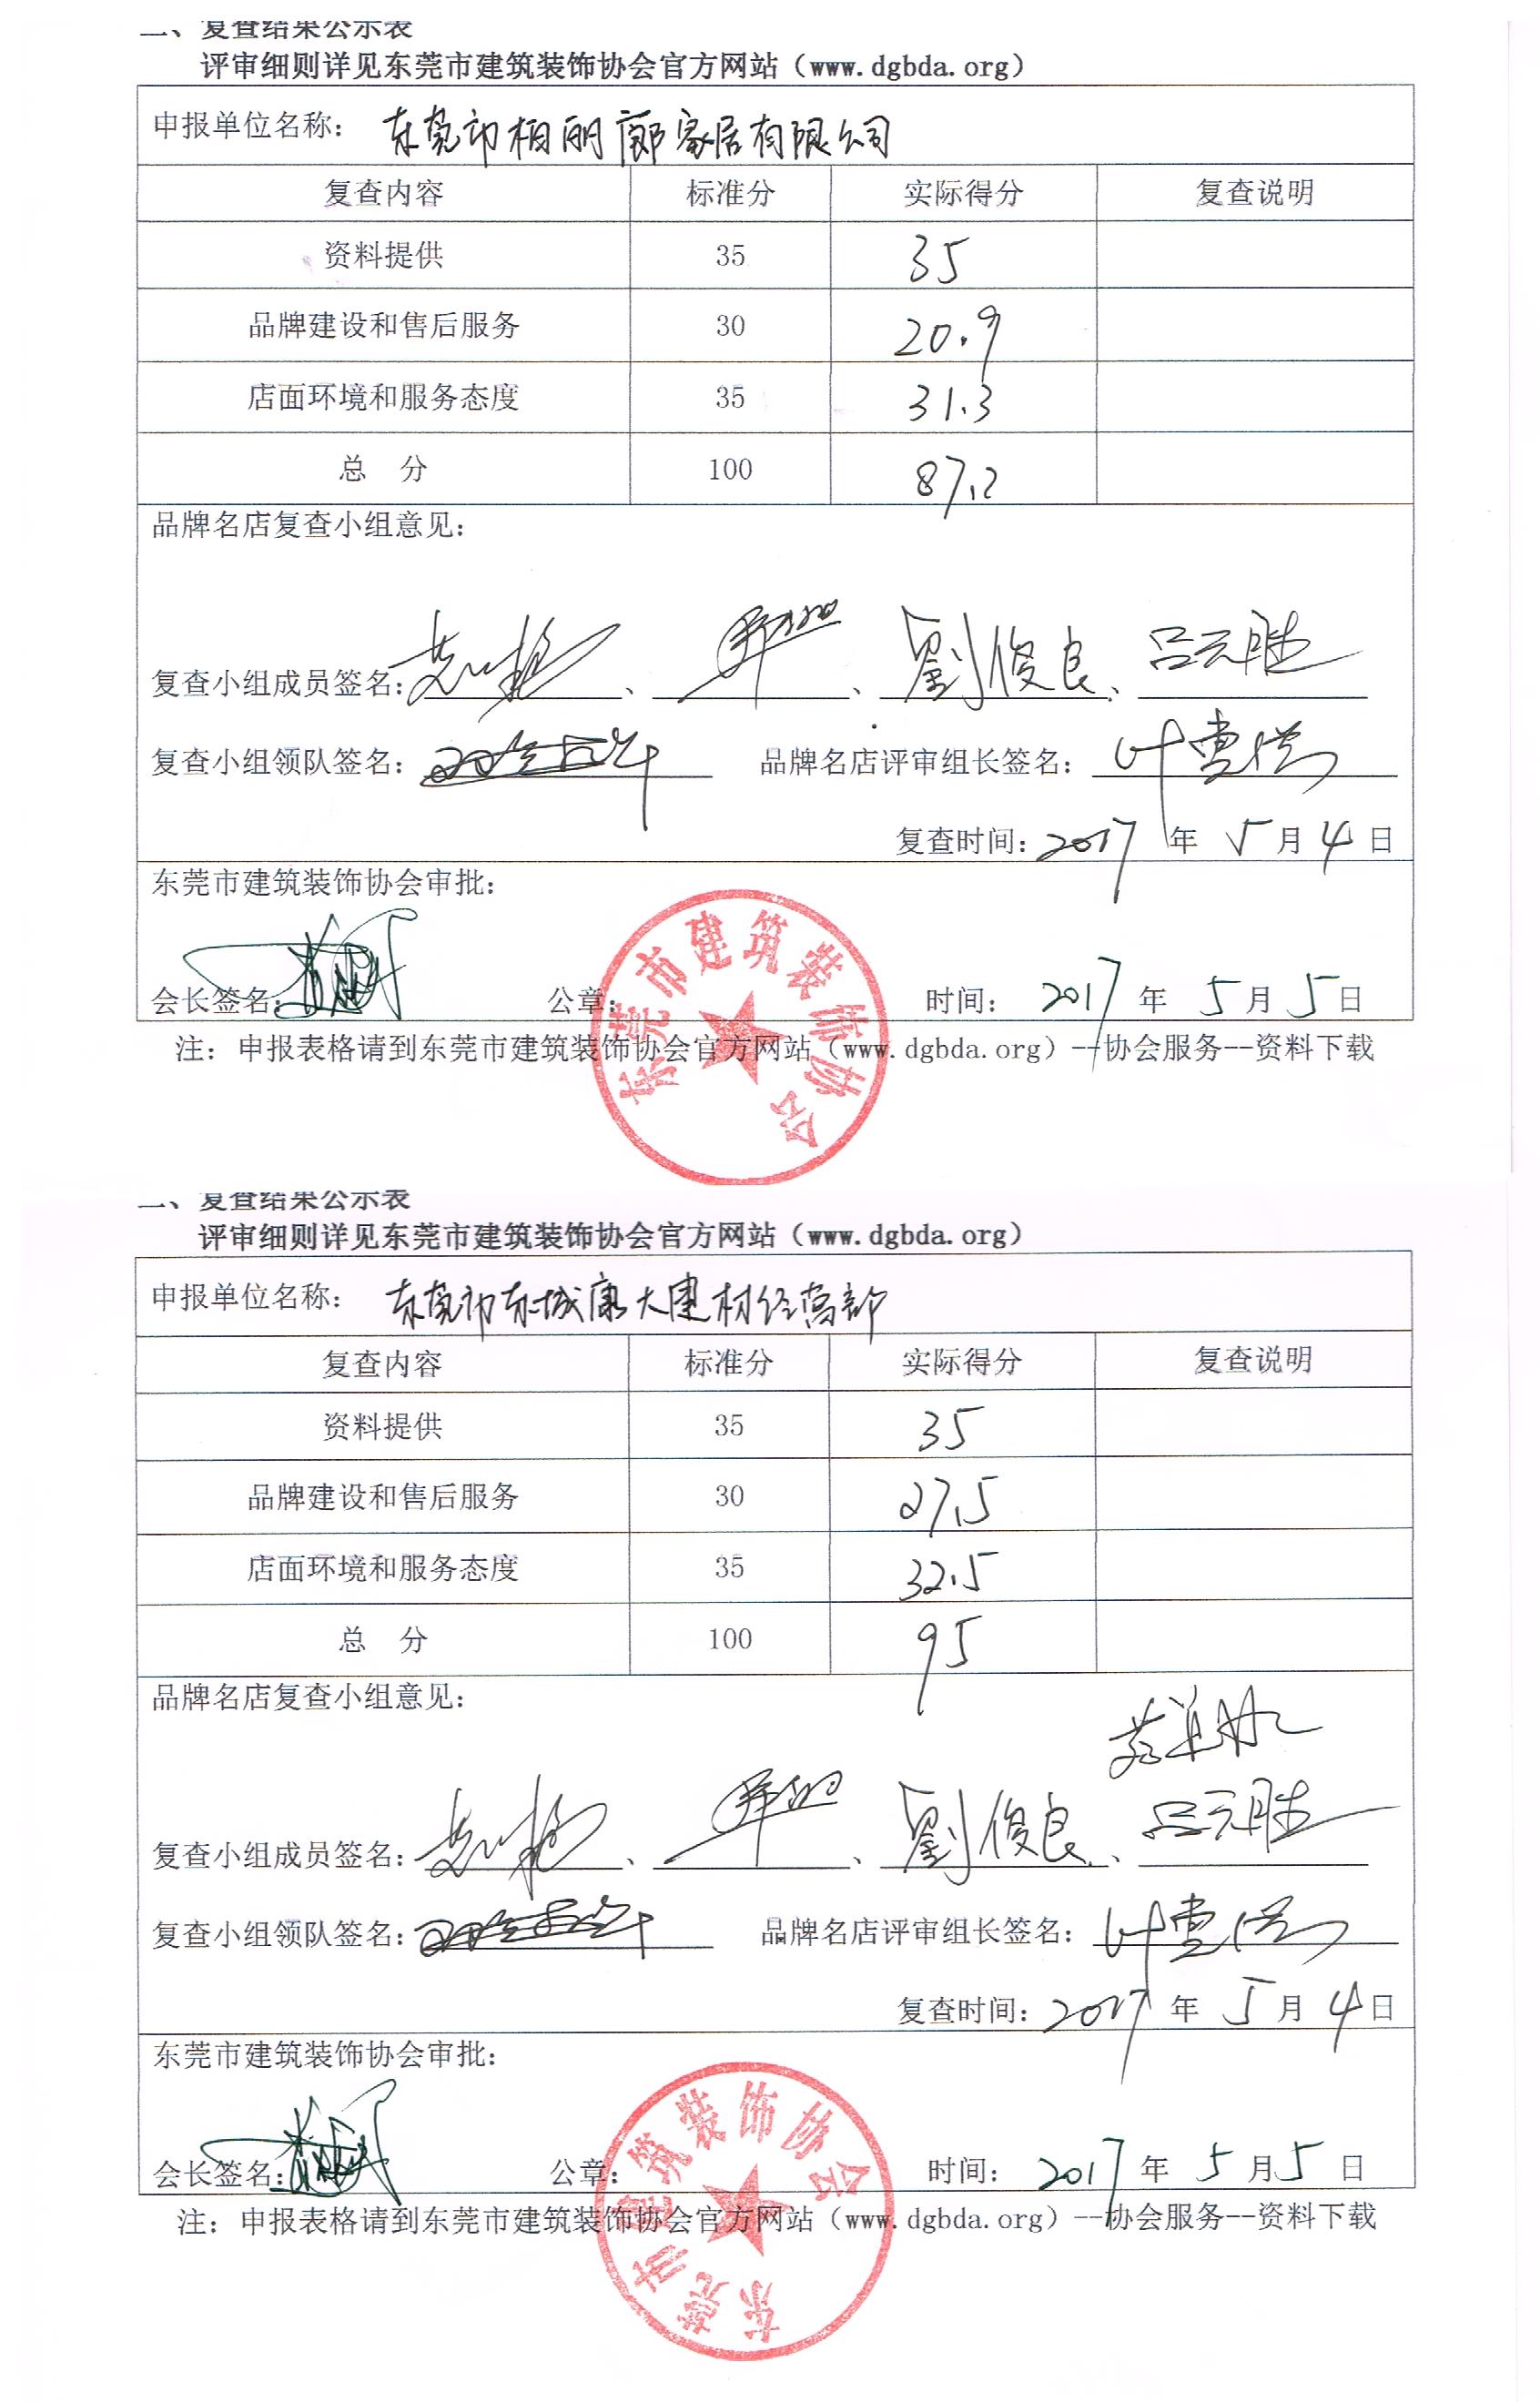 二、复查结果公示表
评审细则详见东莞市建筑装饰协会官方网站（www.dgbda.org）
申报单位名称： 东莞市柏丽廊家居有限公司
复查内容 标准分 实际得分 复查说明
资料提供 35 35
品牌建设和售后服务 30 20.9
店面环境和服务态度 35 31.3
总 分 100 87.2
品牌名店复查小组意见：
复查小组成员签名： 、 、 劉俊良 、 吕元胜
复查小组领队签名： 品牌名店评审组长签名：
复查时间：2017 年 5 月 4 日
东莞市建筑装饰协会审批：
会长签名： 公章： 时间： 2017 年 5 月 5 日
东莞市建筑装饰协会
注：申报表格请到东莞市建筑装饰协会官方网站（www.dgbda.org）--协会服务--资料下载
二、复查结果公示表
评审细则详见东莞市建筑装饰协会官方网站（www.dgbda.org）
申报单位名称： 东莞市东城康大建材经营部
复查内容 标准分 实际得分 复查说明
资料提供 35 35
品牌建设和售后服务 30 27.5
店面环境和服务态度 35 32.5
总 分 100 95
品牌名店复查小组意见：
复查小组成员签名： 、 、 劉俊良 、 吕元胜
复查小组领队签名： 品牌名店评审组长签名：
复查时间：2017 年 5 月 4 日
东莞市建筑装饰协会审批：
会长签名： 公章： 时间： 2017 年 5 月 5 日
东莞市建筑装饰协会
注：申报表格请到东莞市建筑装饰协会官方网站（www.dgbda.org）--协会服务--资料下载